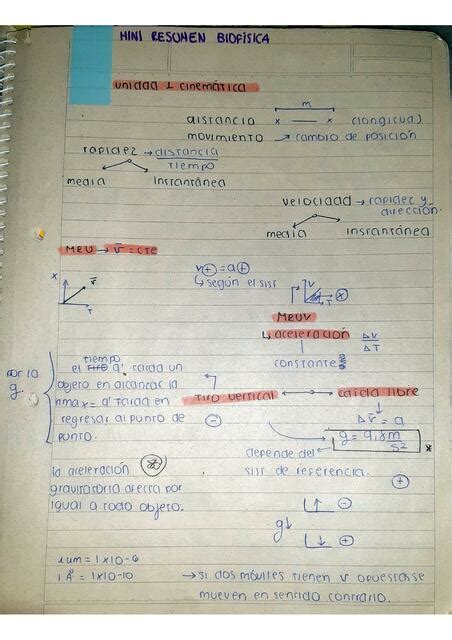 MINI RESUMEN BIOFÍSICA
unidad 1 cinemática
m
distancia x — x (longitud)
movimiento → cambio de posición
rapidez → distancia
tiempo
media instantánea
velocidad → rapidez y
dirección.
media instantánea
MRU → v̄ = cte
x v̄
T
v⊕ = a⊕
↳ según el sist
V
T
MRUV
↳ aceleración ΔV
ΔT
constante
tiempo
el q' tarda un
objeto en alcanzar la
hmax = q' tarda en
regresar al punto de
punto.
por la
g.
tiro vertical ↔ caída libre
⊖ Δv̄ = a
g = 9,8m
s²
depende del
sist de referencia.
⊕
la aceleración
gravitatoria afecta por
igual a todo objeto.
↑ ⊖
g↓
↓ ⊕
1um = 1x10-6
1 Å = 1x10-10
→ si dos móviles tienen v opuestas se
mueven en sentido contrario.